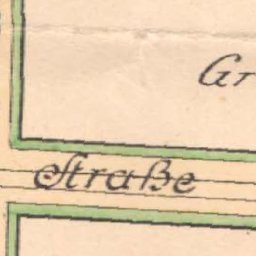 Gr
Straße